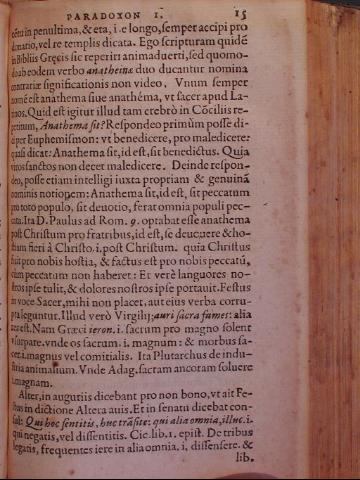 PARADOXON I. 15
cētu in penultima, & eta, i. e longo, semper accipi pro
donatio, vel re templis dicata. Ego scripturam quidē
in Bibliis Gręcis sic reperiri animaduerti, sed quomo-
do ab eodem verbo anatheinæ duo ducantur nomina
contrariæ significationis non video. Vnum semper
nomē est anathema siue anathéma, vt sacer apud La-
tinos. Quid est igitur illud tam crebrò in Cōciliis re-
petitum, Anathema sit? Respondeo primùm posse di-
ci per Euphemismon: vt benedicere, pro maledicere:
quasi dicat: Anathema sit, id est, sit benedictus. Quia
viros sanctos non decet maledicere. Deinde respon-
deo, posse etiam intelligi iuxta propriam & genuinā
nominis notionem: Anathema sit, id est, sit peccatum
pro toto populo, sit deuotio, ferat omnia populi pec-
cata. Ita D. Paulus ad Rom. 9. optabat esse anathema
post Christum pro fratribus, id est, se deuouere & ho-
stiam fieri à Christo. i. post Christum. quia Christus
fuit pro nobis hostia, & factus est pro nobis peccatū,
cùm peccatum non haberet: Et verè languores no-
stros ipse tulit, & dolores nostros ipse portauit. Festus
in voce Sacer, mihi non placet, aut eius verba corru-
pta leguntur. Illud verò Virgilij; auri sacra fames: alia
res est. Nam Græci ieron. i. sacrum pro magno solent
vsurpare. vnde os sacrum. i. magnum: & morbus sa-
cer. i. magnus vel comitialis. Ita Plutarchus de indu-
stria animalium. Vnde Adag. sactam ancoram soluere
i. magnam.
Alter, in auguriis dicebant pro non bono, vt ait Fe-
stus in dictione Altera auis. Et in senatu dicebat con-
sul: Qui hoc sentitis, huc trāsite: qui alia omnia, illuc. i.
qui negatis, vel dissentitis. Cic. lib. 1. epist. De tribus
legatis, frequentes iere in alia omnia. i. dissensere. &
lib.